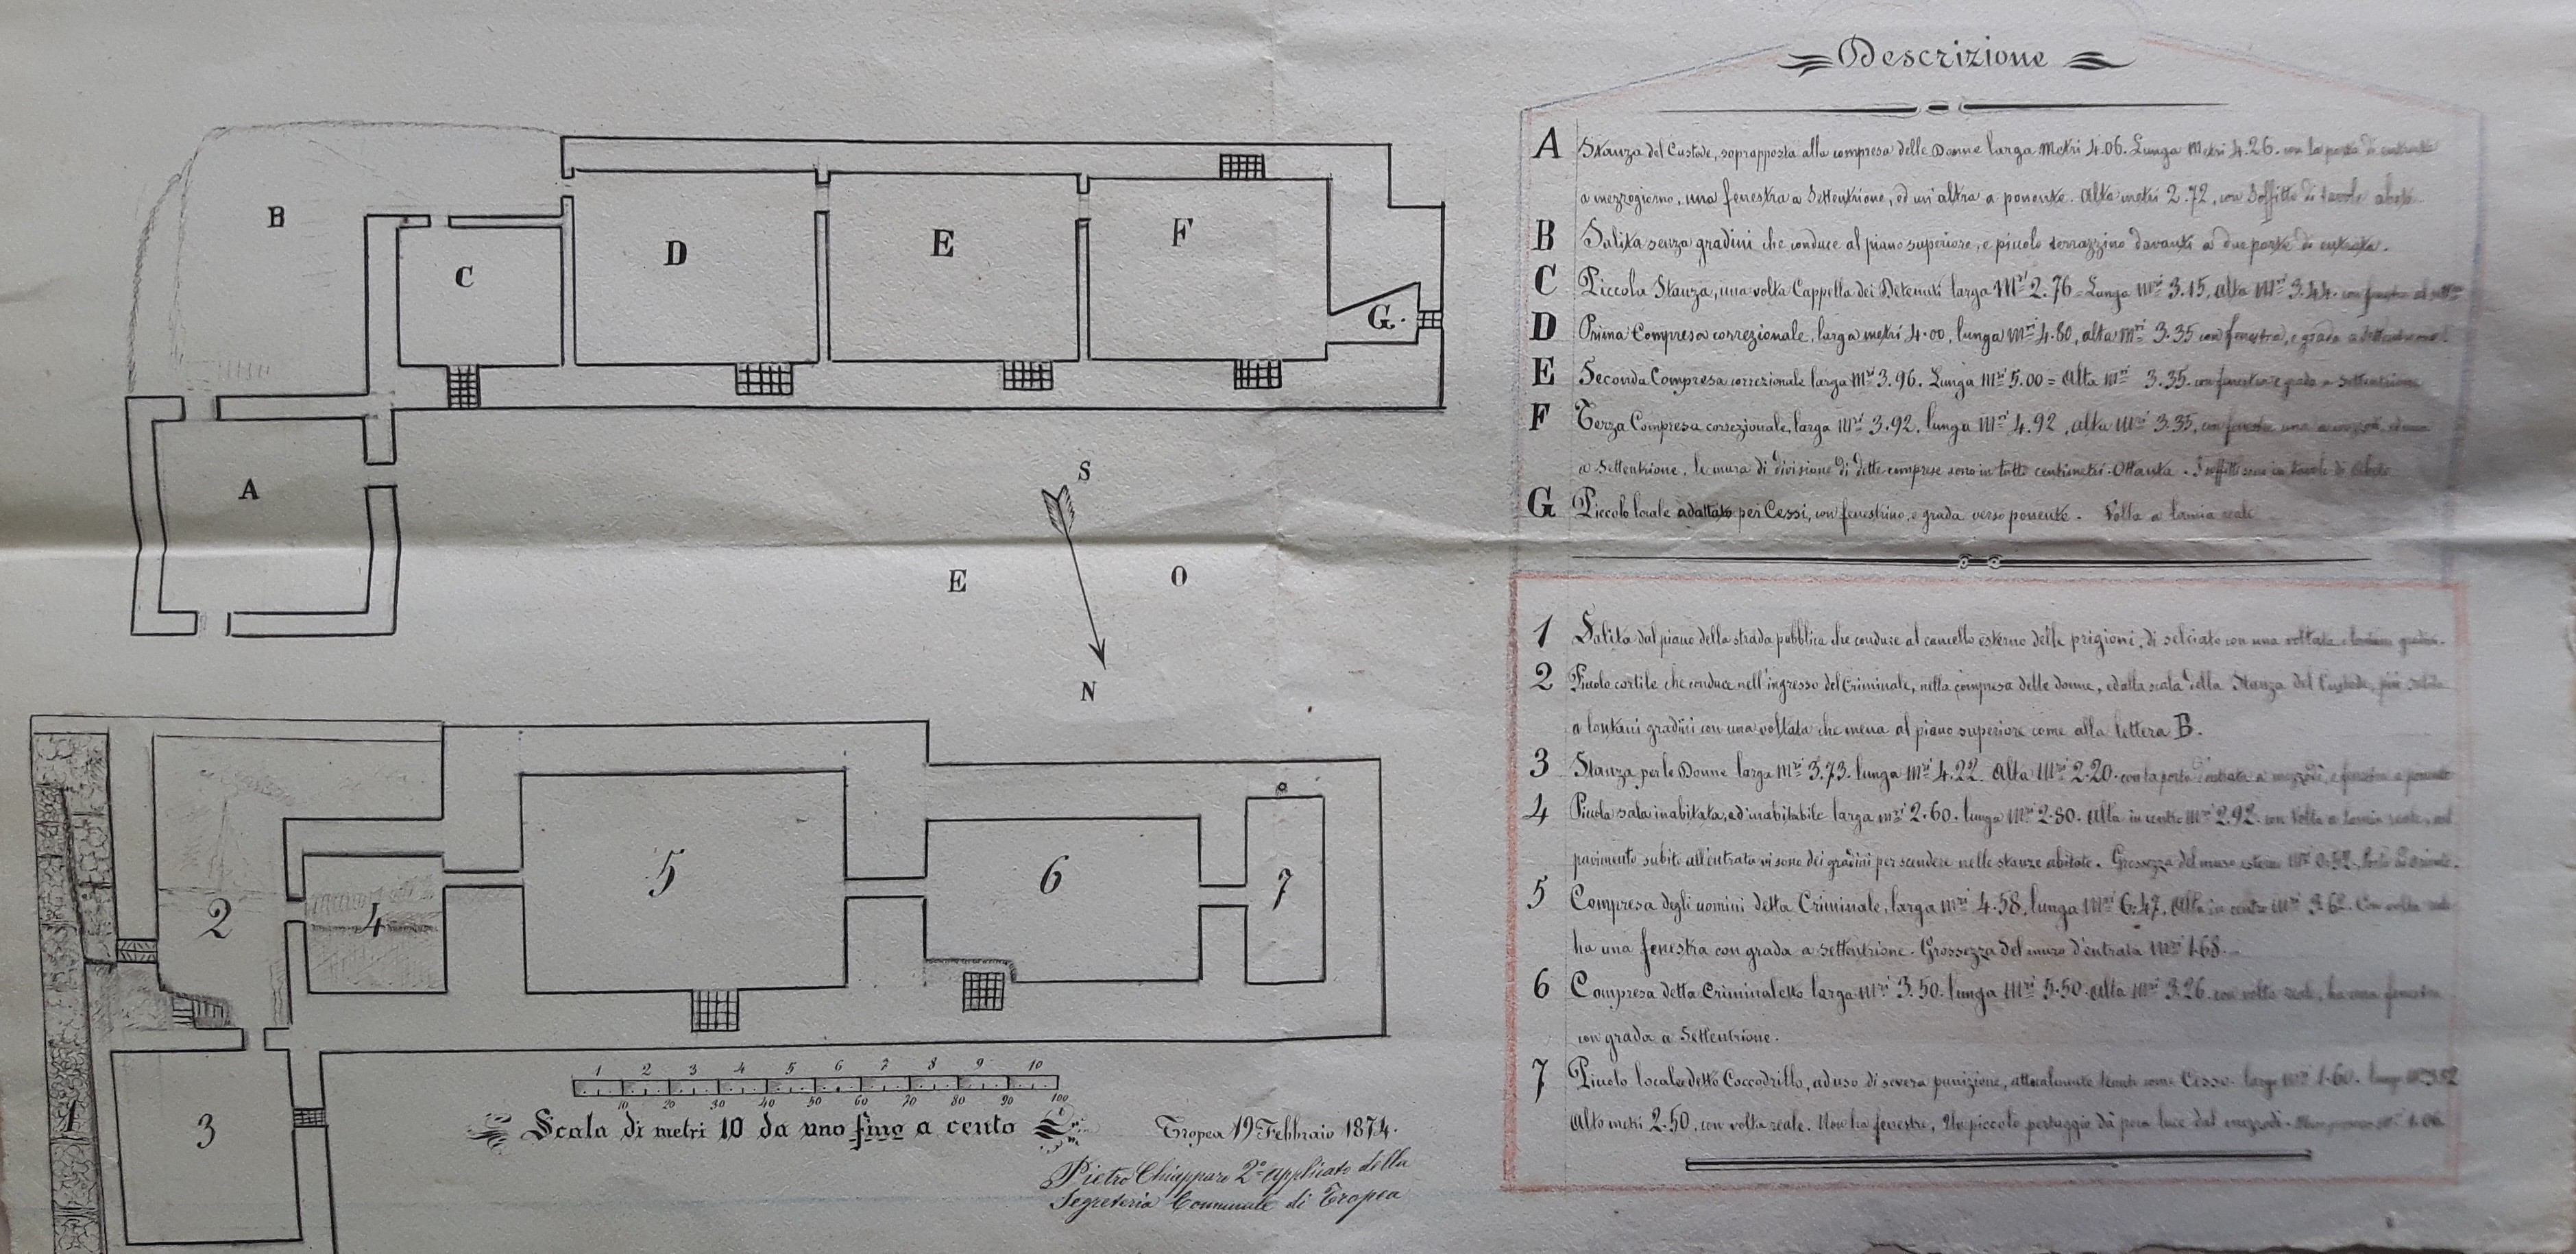 Descrizione
A Stanza del Custode, soprapposta alla compresa delle Donne larga Metri 4.06. Lunga Metri 4.26. con la porta di entrata
a mezzogiorno, una fenestra a Settentrione, ed un'altra a ponente. Alta metri 2.72, con Soffitto di tavole abete.
B Salita senza gradini che conduce al piano superiore, e piccolo terrazzino davanti a due porte di entrata.
C Piccola Stanza, una volta Cappella dei Detenuti larga Mtri 2.76 - Lunga Mtri 3.15. Alta Mtri 3.44. con
D Prima Compresa correzionale, larga metri 4.00, lunga Mtri 4.80, alta Mtri 3.35 con fenestra, e grada a
E Seconda Compresa correzionale larga Mtri 3.96. Lunga Mtri 5.00 = Alta Mtri 3.35. con fenestra e grada a Settentrione
F Terza Compresa correzionale, larga Mtri 3.92. lunga Mtri 4.92, alta Mtri 3.35, con fenestre una a
a Settentrione, le mura di divisione di dette comprese sono in tutto centimetri Ottanta. I soffitti sono in tavole di abete
G Piccolo locale adattato per Cessi, con fenestrino, e grada verso ponente. Volta a lamia reale
1 Salita dal piano della strada pubblica che conduce al cancello esterno delle prigioni, di selciato con una voltata e lontani gradini.
2 Piccolo cortile che conduce nell'ingresso del Criminale, nella compresa delle donne, ed alla scala della Stanza del Custode, più salita
a lontani gradini con una voltata che mena al piano superiore come alla lettera B.
3 Stanza per le Donne larga Mtri 3.73. lunga Mtri 4.22. Alta Mtri 2.20. con la porta d'entrata a mezzodì, e fenestra a ponente
4 Piccola sala inabitata, ed inabitabile larga mtri 2.60. lunga Mtri 2.80. Alta in centro Mtri 2.92. con Volta a lamia reale, nel
pavimento subito all'entrata vi sono dei gradini per scendere nelle stanze abitate. Grossezza del muro esterno Mtri 0.52. Porta ad Oriente.
5 Compresa degli uomini detta Criminale, larga mtri 4.58. lunga Mtri 6.47. Alta in centro Mtri 3.62. Con volta reale
ha una fenestra con grada a settentrione. Grossezza del muro d'entrata Mtri 1.68.
6 Compresa detta Criminaletto larga mtri 3.50. lunga Mtri 5.50. Alta Mtri 3.26. con volta reale, ha una fenestra
con grada a Settentrione.
7 Piccolo locale detto Coccodrillo, ad uso di severa punizione, attualmente tenuto come Cesso. larga Mtri 1.60.
Alto metri 2.50, con volta reale. Non ha fenestre, Un piccolo pertuggio dà poca luce dal mezzodì.
B
C
D
E
F
G.
A
S
E
O
N
2
4
5
6
7
1
3
1 2 3 4 5 6 7 8 9 10
10 20 30 40 50 60 70 80 90 100
Scala di metri 10 da uno fino a cento
Tropea 19 Febbraio 1874.
Pietro Chiapparo 2° applicato della
Segreteria Comunale di Tropea